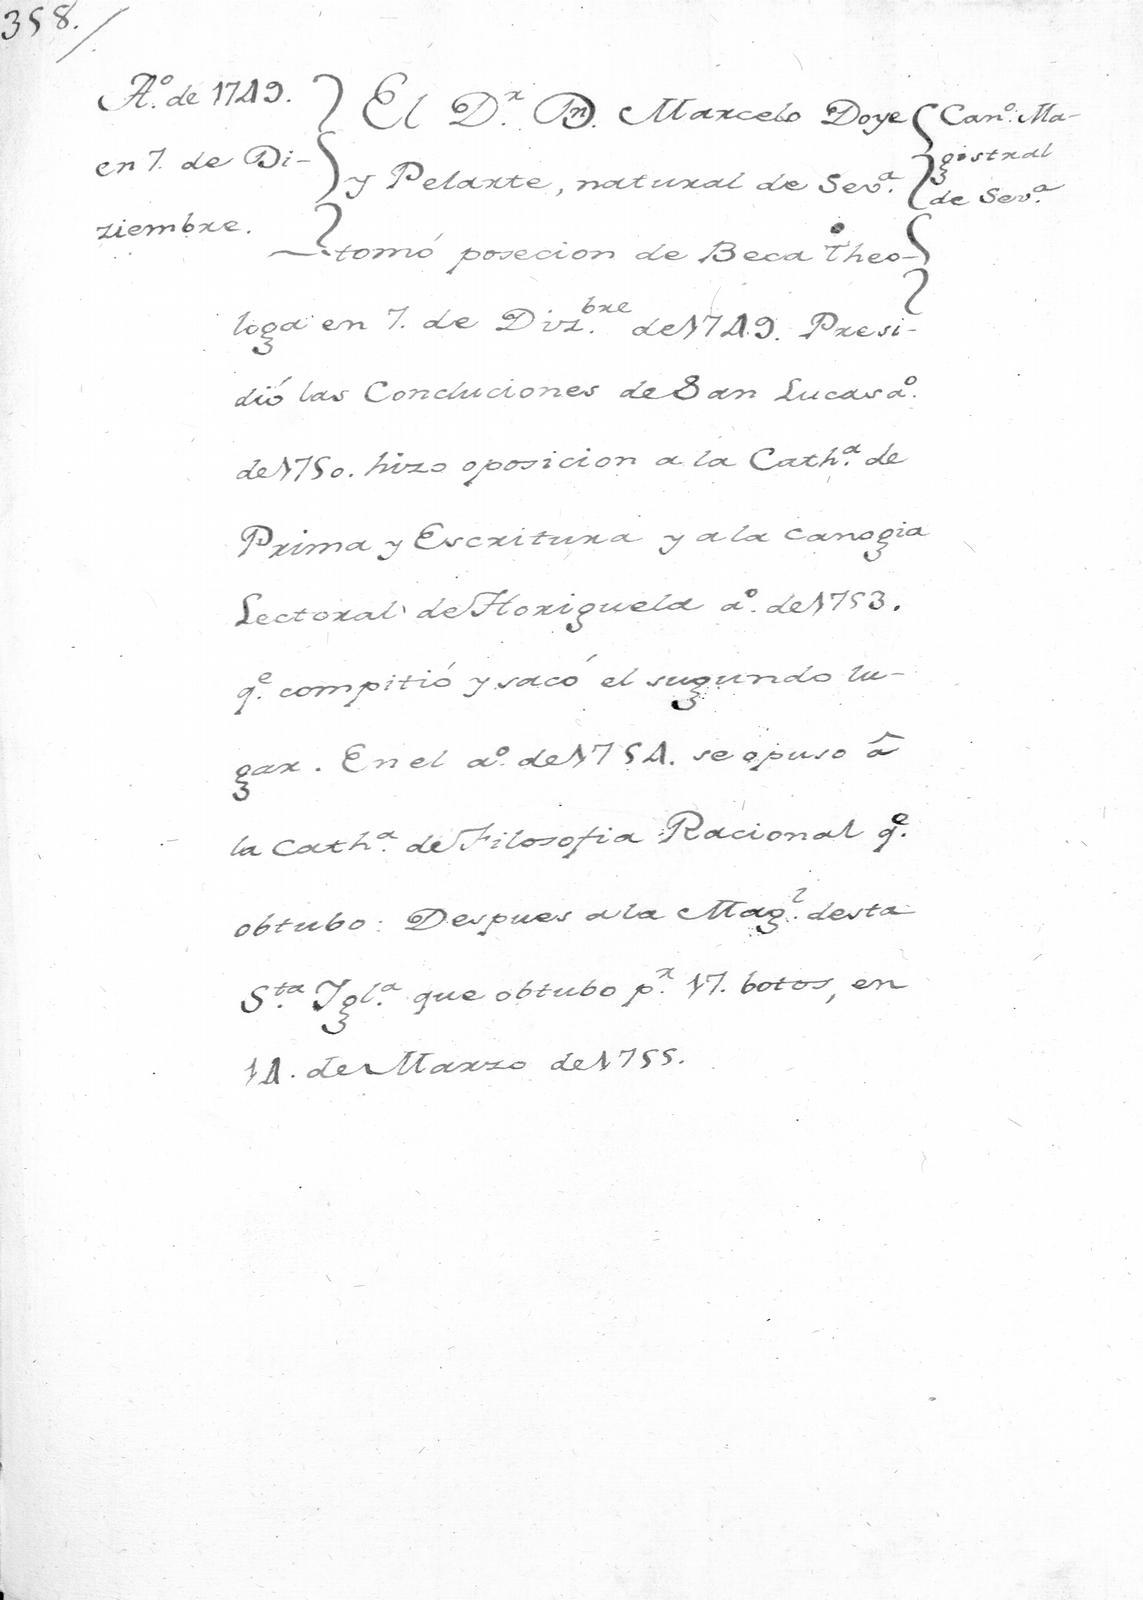 358.
Aº. de 1749.
en 7. de Di-
ziembre.
El Dr. Dn. Marcelo Doye
y Pelarte, natural de Seva.
tomó posecion de Beca Theo-
loga en 7. de Dizbre. de 1749. Presi-
dió las Concluciones de San Lucas aº.
de 1750. hizo oposicion a la Catha. de
Prima y Escritura y a la canogia
Lectoral de Horiguela aº. de 1753.
qe. compitió y sacó el sugundo lu-
gar. En el aº. de 1754. se opuso â
la Catha. de Filosofia Racional qe.
obtubo: Despues a la Magl. desta
Sta. Igla. que obtubo pr. 17. botos, en
14. de Marzo de 1755.
Canº. Ma-
gistral
de Seva.